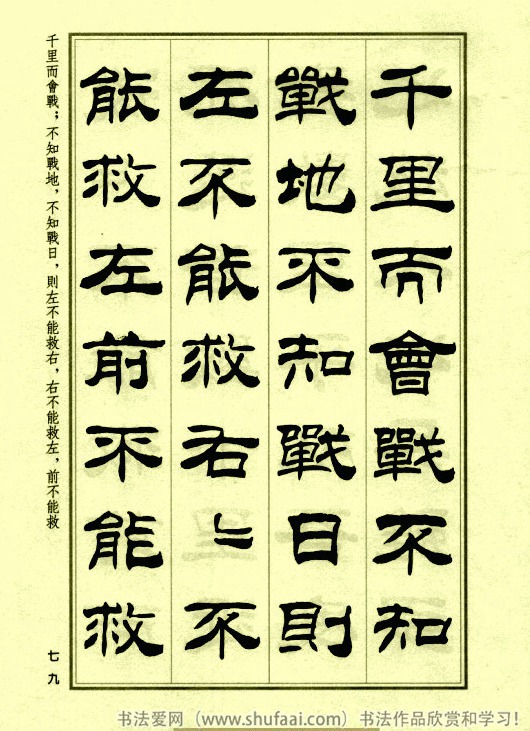 千里而會戰不知
戰地不知戰日則
左不能救右〻不
能救左前不能救
千里而會戰；不知戰地，不知戰日，則左不能救右，右不能救左，前不能救
七九
书法爱网（www.shufaai.com）书法作品欣赏和学习！